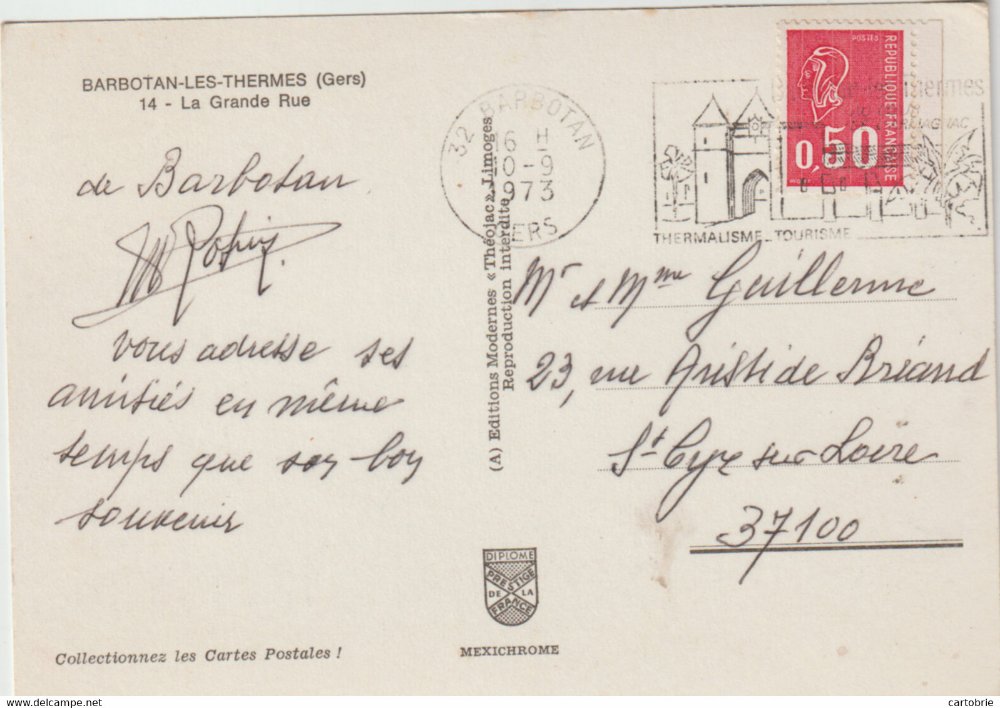 BARBOTAN-LES-THERMES (Gers)
14 - La Grande Rue
de Barbotan
vous adresse ses
amitiés en même
temps que son bon
souvenir
Collectionnez les Cartes Postales !
(A) Editions Modernes « Théojac » Limoges
Reproduction interdite
DIPLOME
PRESTIGE
DE LA
FRANCE
MEXICHROME
32 BARBOTAN
16 H
10-9
1973
GERS
POSTES
REPUBLIQUE FRANÇAISE
0,50
Thermes
ARMAGNAC
THERMALISME - TOURISME
Mr et Mme Guillerme
23, rue Aristide Bréand
St Cyr sur Loire
37100
www.delcampe.net
cartobrie